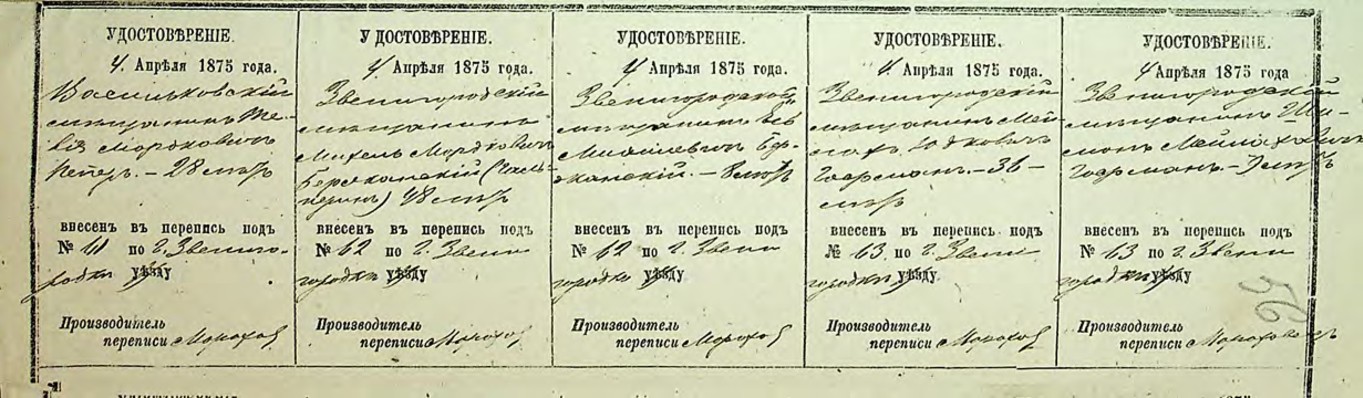 УДОСТОВѢРЕНІЕ.
4. Апрѣля 1875 года.
Васильковскій
мѣщанинъ
Мордковичъ
28 лѣтъ
внесенъ въ перепись подъ
№ 61 по г. Звениго-
родкѣ уѣзду
Производитель
переписи
У ДОСТОВѢРЕНІЕ.
4 Апрѣля 1875 года.
Звенигородскій
мѣщанинъ
Михель Мордковичъ
48 лѣтъ
внесенъ въ перепись подъ
№ 62 по г. Звени
городкѣ уѣзду
Производитель
переписи
УДОСТОВѢРЕНІЕ.
4 Апрѣля 1875 года.
Звенигородскій
мѣщанинъ
Михелевичъ Бер-
жанскій. – 8 лѣтъ
внесенъ въ перепись подъ
№ 62 по г. Звени
городкѣ уѣзду
Производитель
переписи
УДОСТОВѢРЕНІЕ.
4. Апрѣля 1875 года.
Звенигородскій
мѣщанинъ Мей-
лахъ
Гофманъ. – 36 –
лѣтъ
внесенъ въ перепись подъ
№ 63. по г. Звени
городкѣ уѣзду.
Производитель
переписи
УДОСТОВѢРЕНІЕ.
4 Апрѣля 1875 года
Звенигородскій
мѣщанинъ Ши-
монъ Мейлаховичъ
Гофманъ. – лѣтъ
внесенъ въ перепись подъ
№ 63 по г. Звени
городкѣ уѣзду
Производитель
переписи
56